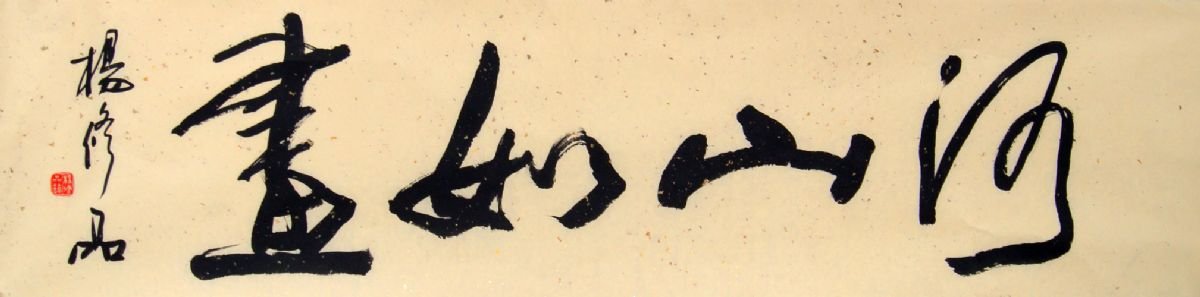 河山如畫
楊修品